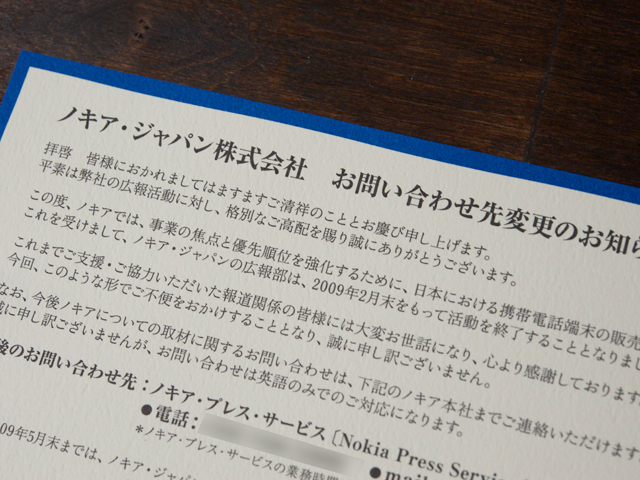 ノキア・ジャパン株式会社　お問い合わせ先変更のお知ら
拝啓　皆様におかれましてはますますご清祥のこととお慶び申し上げます。
平素は弊社の広報活動に対し、格別なご高配を賜り誠にありがとうございます。
この度、ノキアでは、事業の焦点と優先順位を強化するために、日本における携帯電話端末の販売
これを受けまして、ノキア・ジャパンの広報部は、2009年2月末をもって活動を終了することとなりまし
これまでご支援・ご協力いただいた報道関係の皆様には大変お世話になり、心より感謝しております
今回、このような形でご不便をおかけすることとなり、誠に申し訳ございません。
なお、今後ノキアについての取材に関するお問い合わせは、下記のノキア本社までご連絡いただけます
誠に申し訳ございませんが、お問い合わせは英語のみでのご対応になります。
後のお問い合わせ先：ノキア・プレス・サービス〔Nokia Press Servi
●電話：
●mail
*ノキア・プレス・サービスの業務時間
09年5月末までは、ノキア・ジャパ